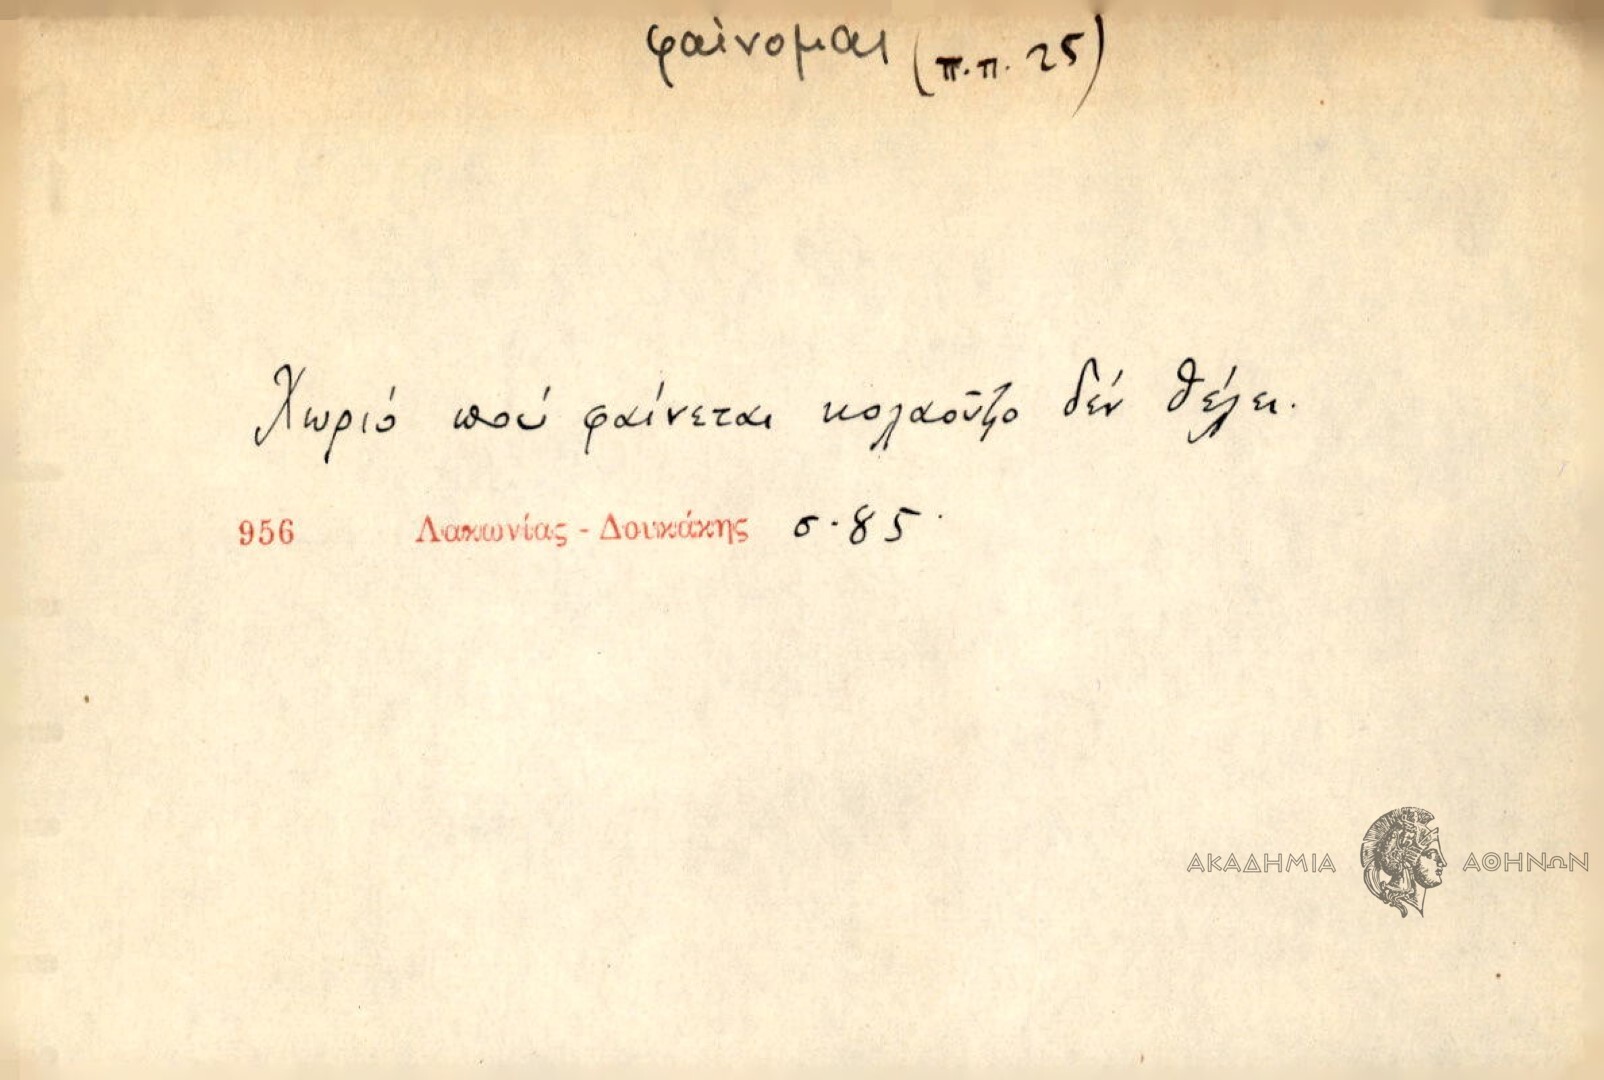 φαίνομαι (π.π. 25)
Χωριό πού φαίνεται κολαοῦζο δέν θέλει.
956 Λακωνίας - Δουκάκης σ. 85.
ΑΚΑΔΗΜΙΑ ΑΘΗΝΩΝ